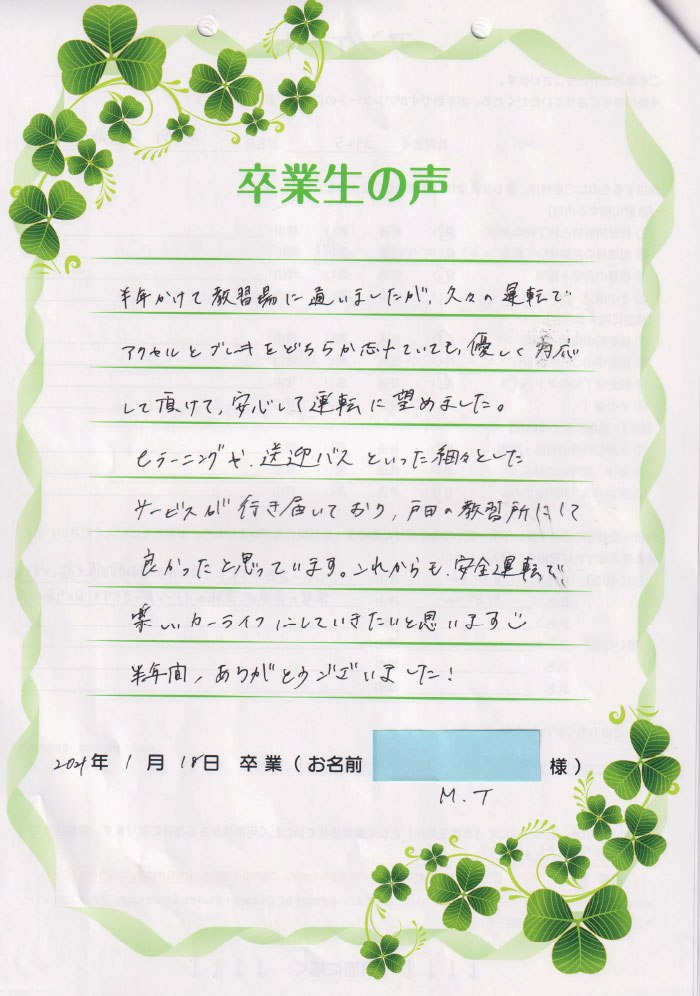 卒業生の声
半年かけて教習場に通いましたが、久々の運転で
アクセルとブレーキをどちらか忘れていても、優しく対応
して頂けて、安心して運転に望めました。
eラーニングや、送迎バスといった細々とした
サービスが行き届いており、戸田の教習所にして
良かったと思っています。これからも、安全運転で、
楽しいカーライフにしていきたいと思います
半年間、ありがとうございました!
2021年 1月 18日 卒業(お名前 様)
M.T